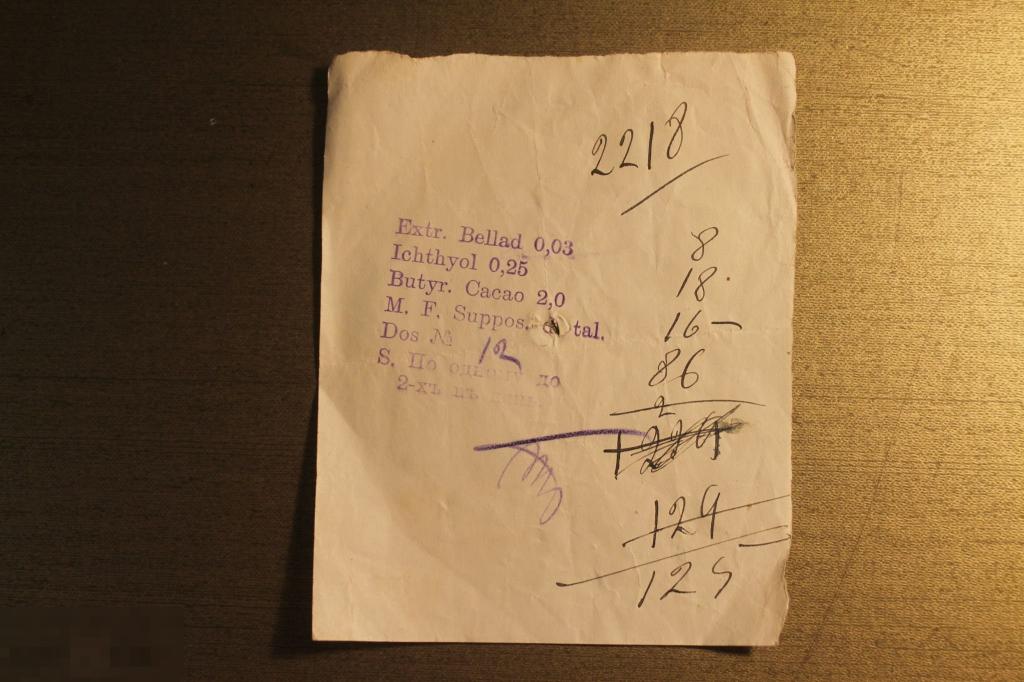 2218
Extr. Bellad 0,03
Ichthyol 0,25
Butyr. Cacao 2,0
M. F. Suppos. d tal.
Dos № 12
S. По одному до
2-хъ въ день.
8
18.
16 —
86
2
129
125